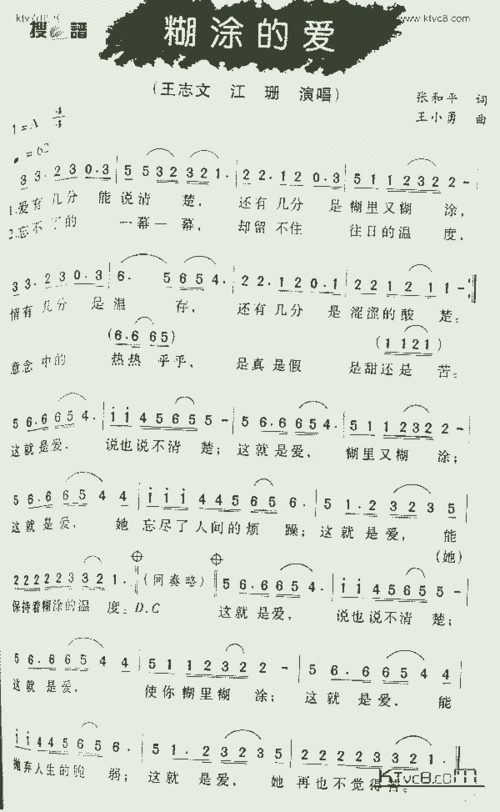 ktvc8.com
www.ktvc8.com
搜 谱
糊涂的爱
(王志文 江 珊 演唱)
张和平 词
王小勇 曲
1=A 4/4
♩=62
33.230.3 | 55 3 2 3 2 1. | 22.120.3 | 5 1 1 2 3 2 2 - |
1.爱有几分 能 说 清 楚, 还有几分 是 糊里又糊 涂,
2.忘不了的 一幕一 幕, 却留不住 往日的温 度,
33.230.3 | 6. 5 6 5 4. | 22.120.1 | 2 2 1 2 1 1 - :|
情有几分 是温 存, 还有几分 是 涩涩的酸 楚。
(6.6 65) (1 1 2 1)
意念中的 热热 乎乎, 是真是假 是甜还是 苦。
56.6654. | i i 4 5 6 5 5 - | 56.6654. | 5 1 1 2 3 2 2 - |
这就是爱, 说也说不清 楚; 这就是爱, 糊里又糊 涂;
56.66544 | i i i 4 5 6 5 6. | 5 1.2 3 2 3 5
这就是爱, 她 忘尽了人间的烦 躁; 这就是爱, 能
(她)
2 2 2 2 2 3 3 2 1. (间奏略) 56.6654. | i i 4 5 6 5 5 -
保持着糊涂的温 度。D.C 这就是爱, 说也说不清 楚;
56.66544 | 5 1 1 2 3 2 2 - | 56.66544
这就是爱, 使你糊里糊 涂; 这就是爱, 能
i i i 4 5 6 5 6. | 5 1.2 3 2 3 5 | 2 2 2 2 3 3 2
抛弃人生的脆 弱; 这就是爱, 她 再也不觉得
KTvc8.com